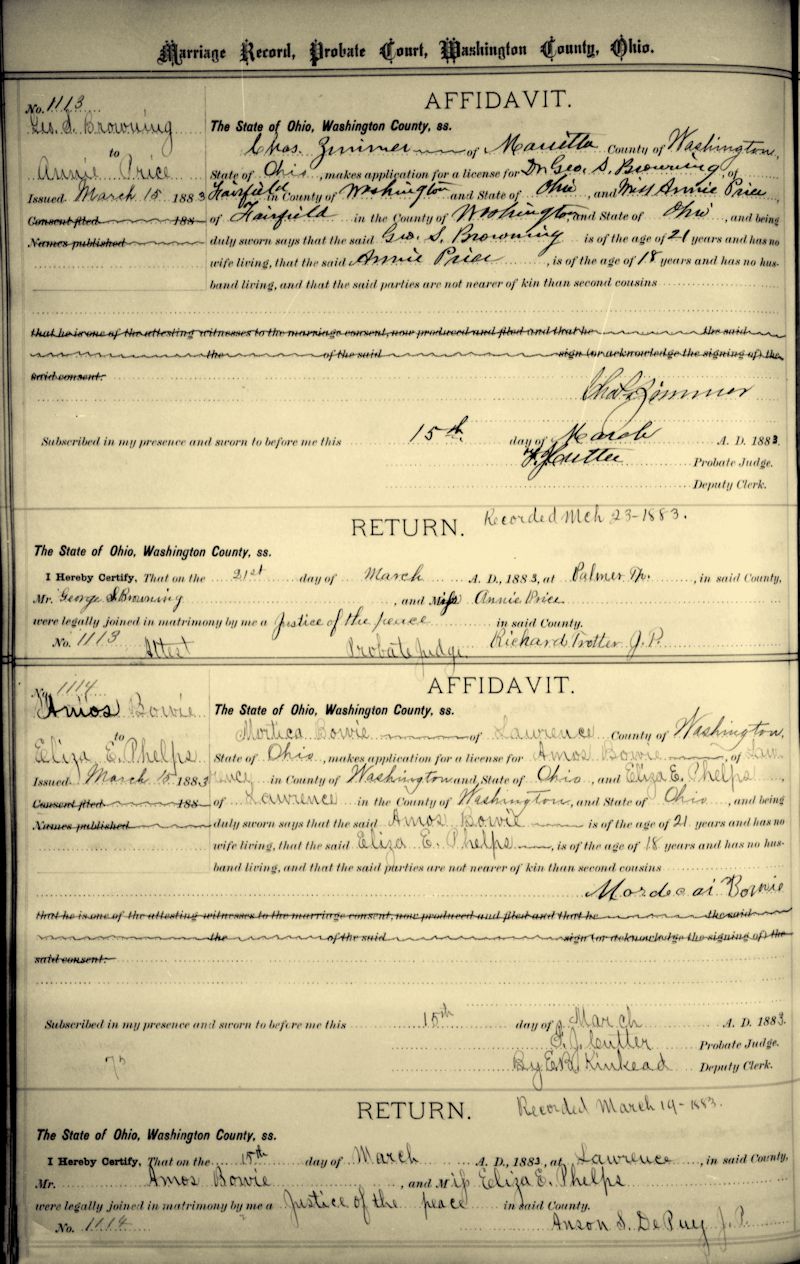 Marriage Record, Probate Court, Washington County, Ohio.
No. 1113
Geo. S. Browning
to
Annie Price
Issued March 15 1883
Consent filed 188
Names published
AFFIDAVIT.
The State of Ohio, Washington County, ss.
Chas. Zimmer of Marietta County of Washington,
State of Ohio, makes application for a license for Dr. Geo. S. Browning, of
Fairfield in County of Washington and State of Ohio, and Miss Annie Price
of Fairfield in the County of Washington and State of Ohio, and being
duly sworn says that the said Geo. S. Browning is of the age of 21 years and has no
wife living, that the said Annie Price, is of the age of 18 years and has no hus-
band living, and that the said parties are not nearer of kin than second cousins
that he is one of the attesting witnesses to the marriage consent, now produced and filed and that he the said
the of the said sign (or acknowledge the signing of) the
said consent.
Chas Zimmer
Subscribed in my presence and sworn to before me this 15th. day of March A. D. 1883.
F. J. Cutter Probate Judge.
Deputy Clerk.
RETURN. Recorded Mch 23-1883.
The State of Ohio, Washington County, ss.
I Hereby Certify, That on the 21st day of March A. D., 1883, at Palmer Tp., in said County,
Mr. George S. Browning, and Miss Annie Price
were legally joined in matrimony by me a Justice of the peace in said County.
No. 1113 Attest Probate Judge. Richard Trotter J. P.
No. 1114
Amos Bowie
to
Eliza E. Phelps
Issued March 15 1883
Consent filed 188
Names published
AFFIDAVIT.
The State of Ohio, Washington County, ss.
Mortica Bowie of Lawrence County of Washington,
State of Ohio, makes application for a license for Amos Bowie, of Law-
rence in County of Washington and State of Ohio, and Eliza E. Phelps,
of Lawrence in the County of Washington, and State of Ohio, and being
duly sworn says that the said Amos Bowie is of the age of 21 years and has no
wife living, that the said Eliza E. Phelps, is of the age of 18 years and has no hus-
band living, and that the said parties are not nearer of kin than second cousins
Mordecai Bowie
that he is one of the attesting witnesses to the marriage consent, now produced and filed and that he the said
the of the said sign (or acknowledge the signing of) the
said consent.
Subscribed in my presence and sworn to before me this 15th day of March A. D. 1883.
F. J. Cutter Probate Judge.
By E. B. Kinkead Deputy Clerk.
RETURN. Recorded March 19-1883.
The State of Ohio, Washington County, ss.
I Hereby Certify, That on the 15th day of March A. D., 1883, at Lawrence, in said County,
Mr. Amos Bowie, and Miss Eliza E. Phelps
were legally joined in matrimony by me a Justice of the peace in said County.
No. 1114 Anson S. DePuey J. P.